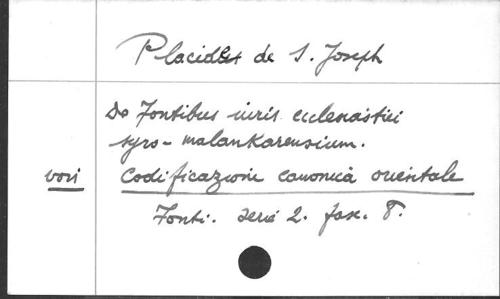 Placidus de S. Joseph
De Fontibus iuris ecclesiastici
syro-malankarensium.
vori Codificazione canonica orientale
Fonti. Serie 2. fasc. 8.